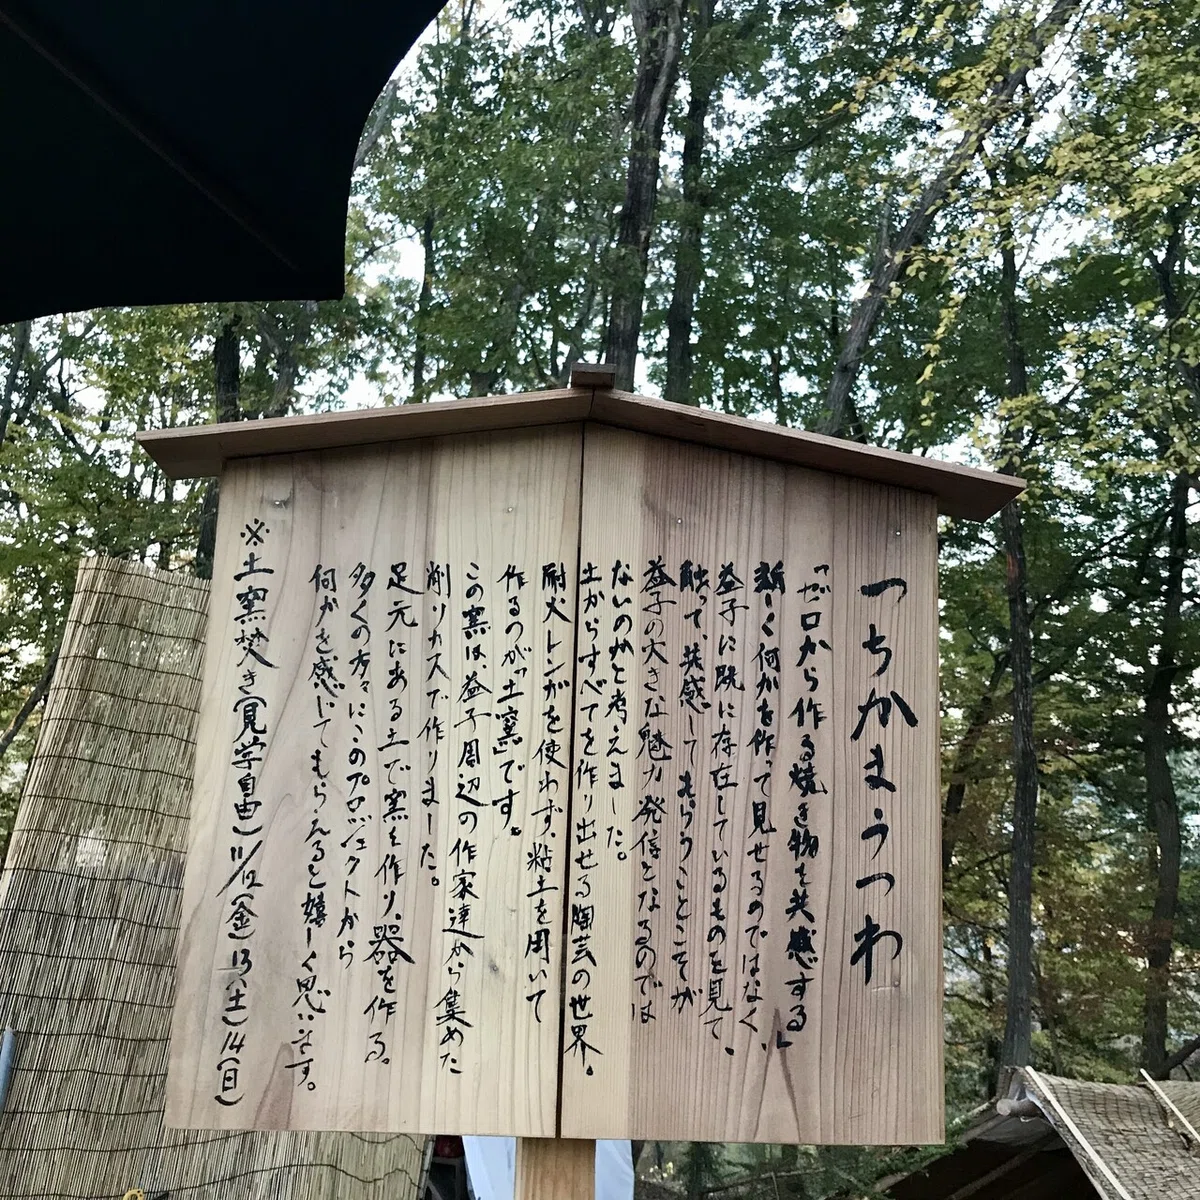 つちかまうつわ
「ゼロから作る焼き物を共感する」
新しく何かを作って見せるのではなく、
益子に既に存在しているものを見て、
触って、共感してもらうことこそが
益子の大きな魅力発信となるのでは
ないのかと考えました。
土からすべてを作り出せる陶芸の世界。
耐火レンガを使わず、粘土を用いて
作るのが「土窯」です。
この窯は、益子周辺の作家達から集めた
削りカスで作りました。
足元にある土で窯を作り、器を作る。
多くの方々にこのプロジェクトから
何かを感じてもらえると嬉しく思います。
※土窯焚き(見学自由)11/12(金)13(土)14(日)